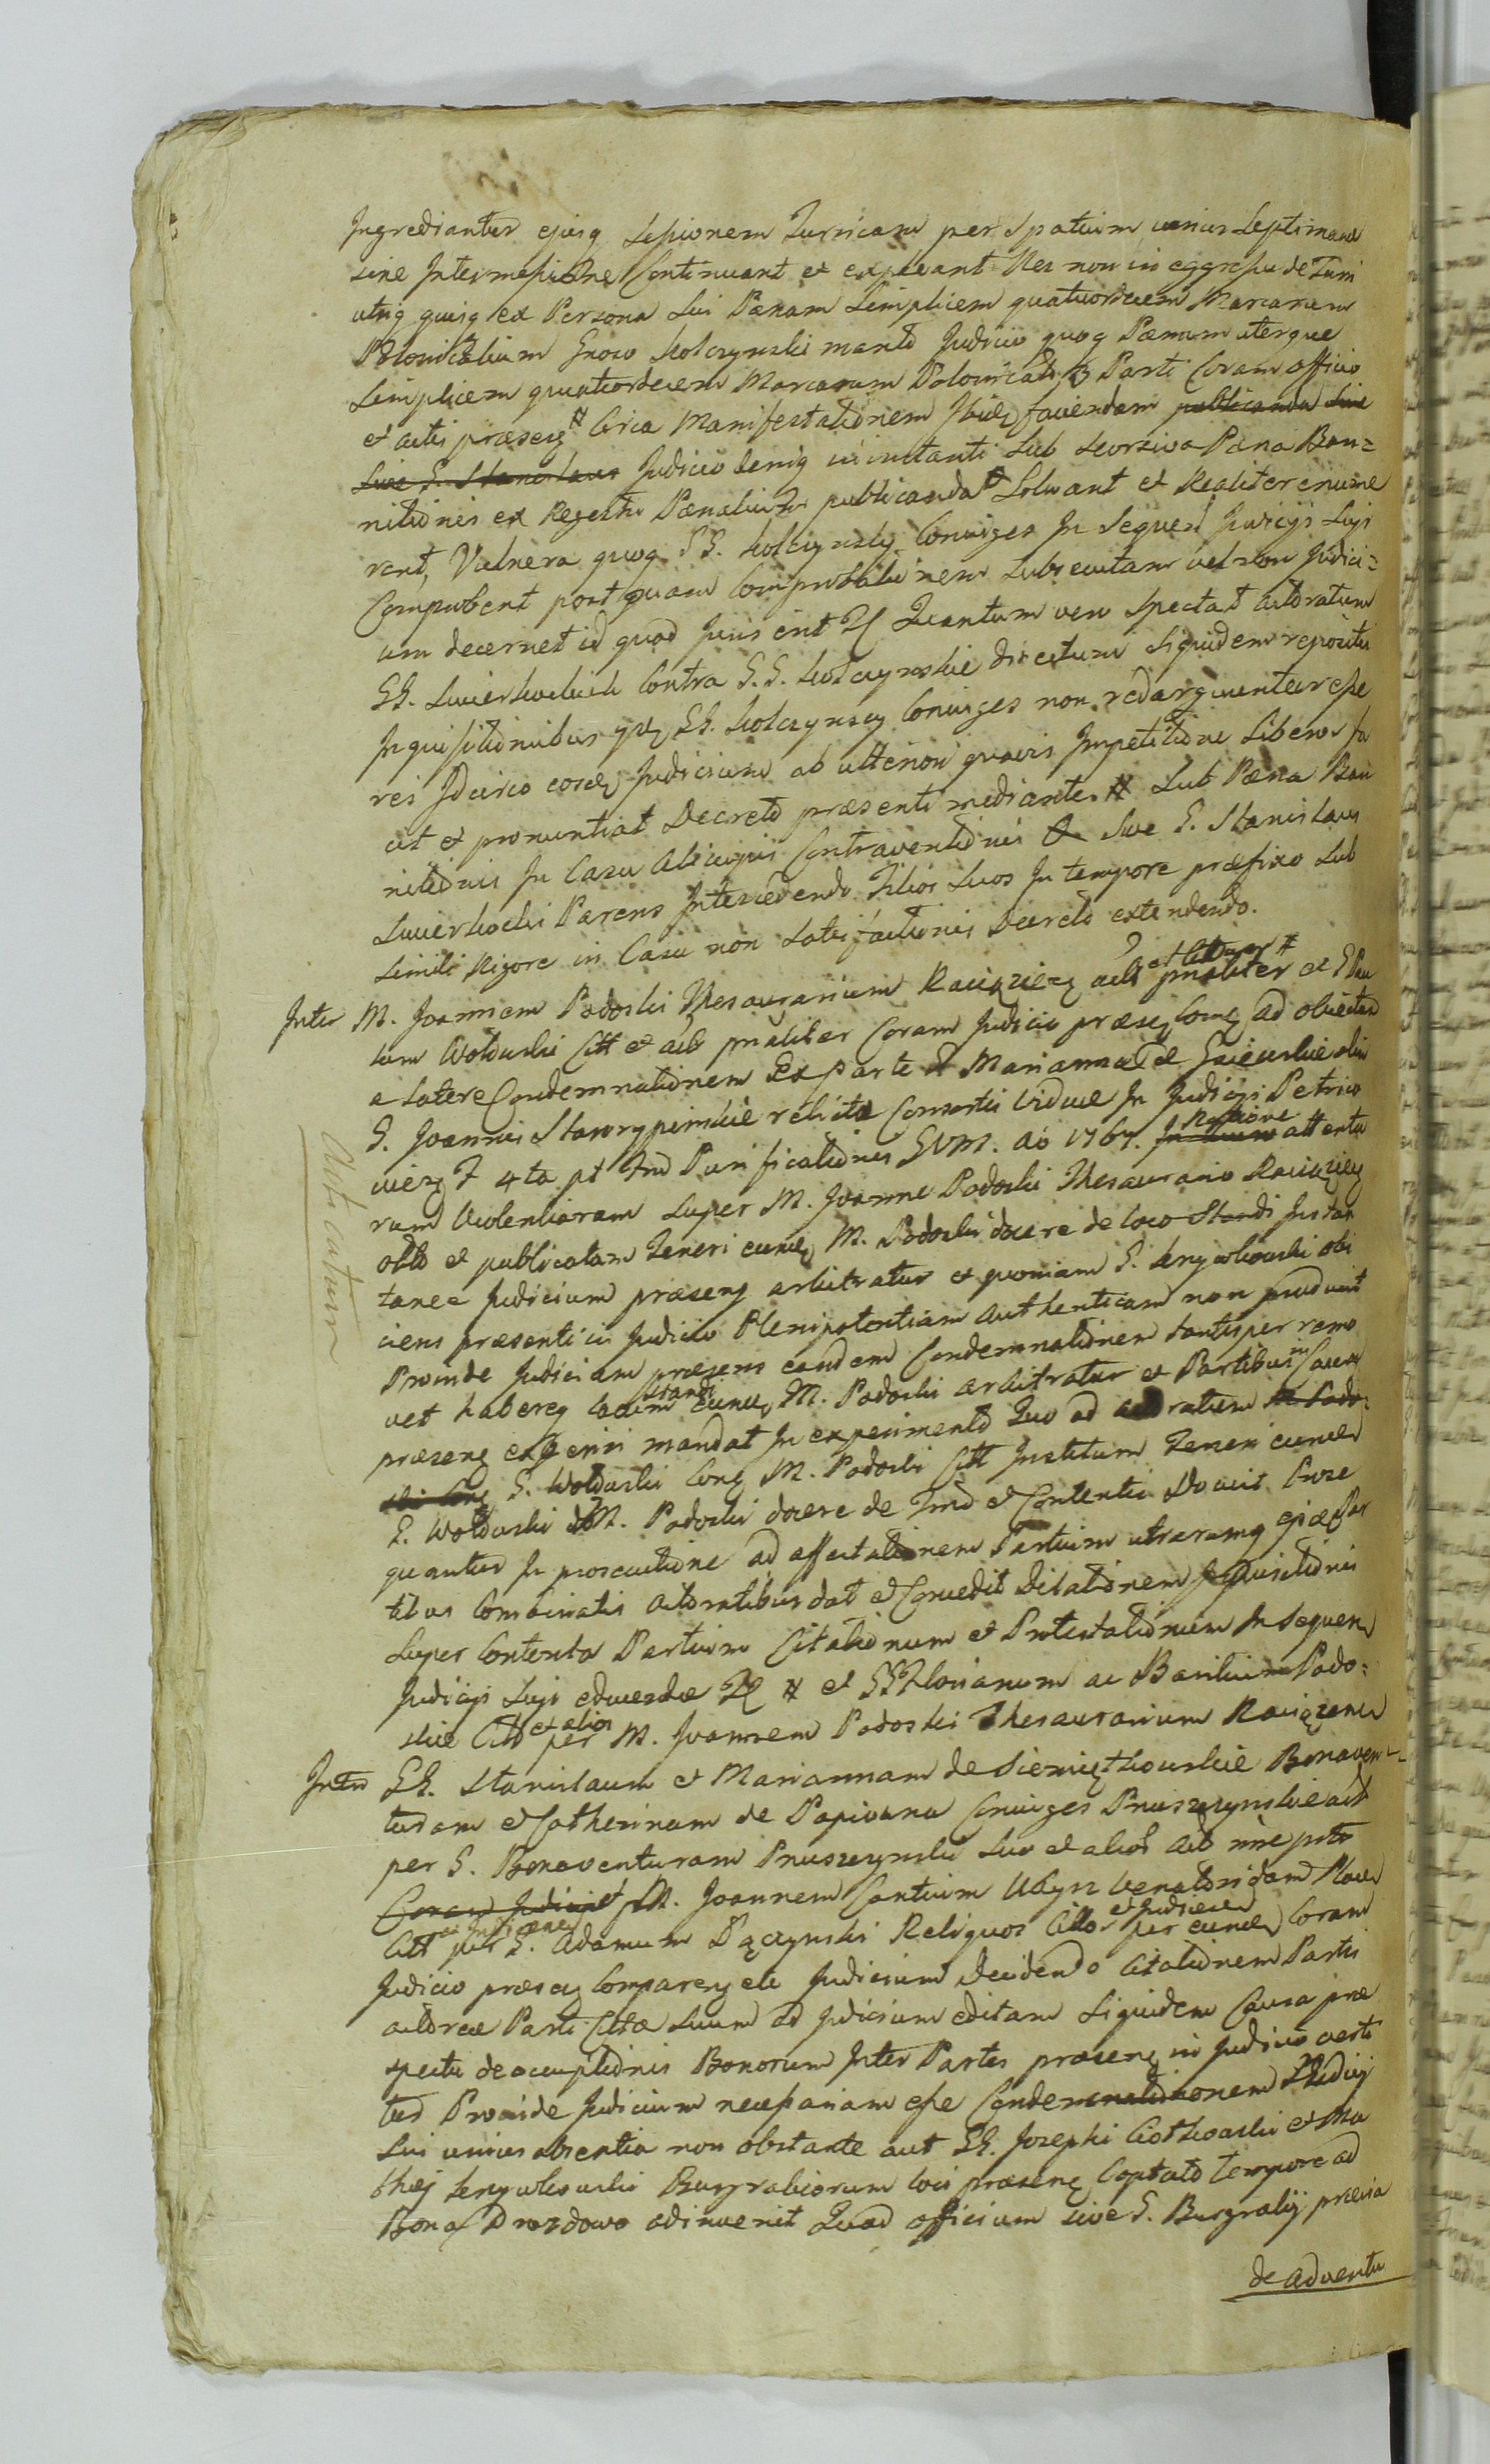 Ingrediantur ejusq Sessionem Turricam per Spatium unius Septimanae
sine Intermissione Continuant et expleant Nec non in eggressu de Turri
utrq quisq ex Persona Sui Paenam Simplicem quatuordecem Marcarum
Polonicalium Groso Kolczynski mantd Judicio quoq Paenam uterque
Simplicem quatuordecem Marcarum Polonical Parti Coram officio
et actis praesenq # Circa Manifestationem Ibidq faciendam publicanda Sive
Sive G. Stanislaus Judicio benig in instanti Sub Seorsiva Paena Ban=
nitionis ex Regestro Paenalium publicanda # Solvant et Realiter enume
rent, Vulnera quoq GG. Kolczynscy Coniuges In Sequen Judicijs Suis
Comprobent post quam Comprobationem Subsecutam vel non Judici=
um decernet id quod Juris erit Quantum vero Spectat actoratum
GG. Swierkockich Contra G.G. Kolczynskie directum Siquidem repositis
Inquisitionibus GG. Kolczynscy Coniuges non redarguuntur esse
rei Idcirco eosdq Judicium ab ulteriori quavis Impetitione Liberos fa
cit et pronuntiat Decreto praesenti mediante # Sub Paena Ban
nitionis In Casu Alicujus Contraventionis Sive G. Stanislaus
Swierkocki Parens Intercedendo Filios Suos In tempore praefixo Sub
Simili Rigore in Casu non Satisfactionis Decreto extendendo.
Inter M. Joannem Podoski Thesaurarium Raciązieq act et Citt pnaliter # et G Pau
lum Wolduski Citt et act pnaliter Coram Judicio praesenq Comq ad objectam
a Latere Condemnationem Ex parte G Mariannae de Gsiecuskie olim
G. Joannis Skarzypinskie relictae Consortis Viduae In Judicijs Petrico
vieq F 4ta pt Fest Purificationis BVM. Ao 1767. Ratione attenta
rum Violentiarum Super M. Joanne Podoski Thesaurario Raciązieq
obtd et publicatam Teneri eundq M. Podoski docere de loco Standi Instan
taneé Judicium praesenq arbitratur et quoniam G. Krzywkowski obi
ciens praesenti in Judicio Plenipotentiam Authenticam non produxit
Proinde Judicium praesens eandem Condemnationem tantisper remo
vet haberq locum standi eundq M. Podoski arbitratur et Partibus in Causa
praesenq experiri mandat In experimento Quo ad actoratum M Podo=
ski Conq G. Wolduski Conq M. Podoski Citt Institum Teneri eundq
G. Wolduski M. Podoski docere de Tmd et Contentis Docuit Prose
quantur In prosecutione ad affectationem Partium utrarumq ejusq Par
tibus Combinatis Actoratibus dat et Concedit Dilationem Inquisitionis
Super Contenta Partium Citationum et Protestationum In Sequen
Judicijs Suis educendae # et GG Florianum ac Basilium Podo=
skie Citt et alios per M. Joannem Podoski Thesaurarium Raciązens
Inter GG. Stanislaum et Mariannam de Siemiątkowskie Bonaven=
turam et Catherinam de Papieska Coniuges Pruszynskie act
per G. Bonaventuram Pruszynski Suo et alior act nne pnte
Coram Judicio et M. Joannem Cantium Ubysz Venatoridam Ploc
Citt per G. Adamum Dączynski Reliquos Citt et Judicis per eundq Coram
Judicio praesenq Comparenq etc Judicium Decidendo Citationem Partis
actoreae Parti Cittae Suum ad Judicium editam Siquidem Causa prae
spectu deoccupationis Bonorum Inter Partes praesenq in Judicio verti
tur Proinde Judicium necessariam esse Condemnationem Judicij
Sui unius absentia non obstante aut GG. Josephi Ciotkowski et Ma
thiej Krzywkowski Burgrabiorum loci praesenq Captato tempore ad
Bona Drozdowo adinvenit Quod officium sive G. Burgrabij praevia
de adventu
Attentatum